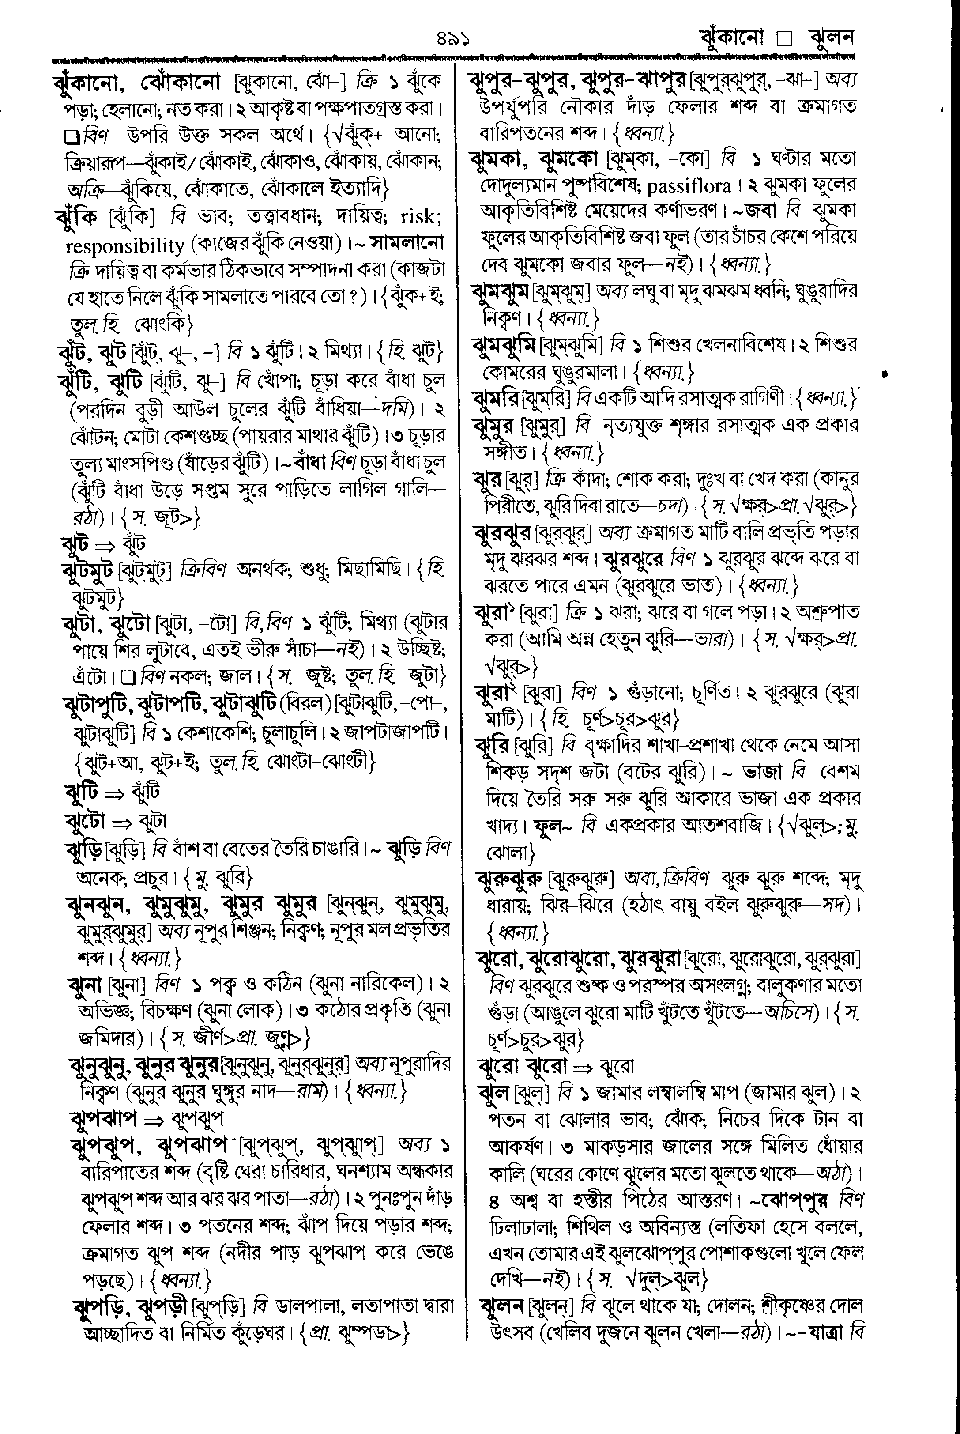 ৪৯১
ঝুঁকানো □ ঝুলন
ঝুঁকানো, ঝোঁকানো [ঝুকানো, ঝোঁ-] ক্রি ১ ঝুঁকে
পড়া; হেলানো; নত করা। ২ আকৃষ্ট বা পক্ষপাতগ্রস্ত করা।
❑ বিণ উপরি উক্ত সকল অর্থে। {√ঝুঁক্+ আনো;
ক্রিয়ারূপ—ঝুঁকাই/ঝোঁকাই, ঝোঁকাও, ঝোঁকায়, ঝোঁকান;
অক্রি—ঝুঁকিয়ে, ঝোঁকাতে, ঝোঁকালে ইত্যাদি}
ঝুঁকি [ঝুঁকি] বি ভাব; তত্ত্বাবধান; দায়িত্ব; risk;
responsibility (কাজের ঝুঁকি নেওয়া)। ~ সামলানো
ক্রি দায়িত্ব বা কর্মভার ঠিকভাবে সম্পাদনা করা (কাজটা
যে হাতে নিলে ঝুঁকি সামলাতে পারবে তো?)। {ঝুঁক+ই;
তুল. হি. ঝোংকি}
ঝুঁট, ঝুট [ঝুঁট, ঝু-, -] বি ১ ঝুঁটি। ২ মিথ্যা। {হি. ঝুট}
ঝুঁটি, ঝুটি [ঝুঁটি, ঝু-] বি খোঁপা; চূড়া করে বাঁধা চুল
(পরদিন বুড়ী আউল চুলের ঝুঁটি বাঁধিয়া—দমি)। ২
ঝোঁটন; মোটা কেশগুচ্ছ (পায়রার মাথার ঝুঁটি)। ৩ চূড়ার
তুল্য মাংসপিণ্ড (ষাঁড়ের ঝুঁটি)। ~বাঁধা বিণ চূড়া বাঁধা চুল
(ঝুঁটি বাঁধা উড়ে সপ্তম সুরে পাড়িতে লাগিল গালি—
রঠা)। {স. জূট>}
ঝুট ⇒ ঝুঁট
ঝুটমুট [ঝুট্‌মুট্] ক্রিবিণ অনর্থক; শুধু; মিছামিছি। {হি.
ঝুটমুট}
ঝুটা, ঝুটো [ঝুটা, -টো] বি,বিণ ১ ঝুঁটি; মিথ্যা (ঝুটার
পায়ে শির লুটাবে, এতই ভীরু সাঁচা—নই)। ২ উচ্ছিষ্ট;
এঁটো। ❑ বিণ নকল; জাল। {স. জুষ্ট; তুল. হি. জুটা}
ঝুটাপুটি, ঝুটাপটি, ঝুটাঝুটি (বিরল) [ঝুটাঝুটি,-পো-,
ঝুটাঝুটি] বি ১ কেশাকেশি; চুলাচুলি। ২ জাপটাজাপটি।
{ঝুট+আ, ঝুট+ই; তুল. হি. ঝোংটা-ঝোংটী}
ঝুটি ⇒ ঝুঁটি
ঝুটো ⇒ ঝুটা
ঝুড়ি [ঝুড়ি] বি বাঁশ বা বেতের তৈরি চাঙারি। ~ ঝুড়ি বিণ
অনেক; প্রচুর। {মু. ঝুরি}
ঝুনঝুন, ঝুমুঝুমু, ঝুমুর ঝুমুর [ঝুন্‌ঝুন্, ঝুমুঝুমু,
ঝুমুর্‌ঝুমুর্] অব্য নূপুর শিঞ্জন; নিক্বণ; নূপুর মল প্রভৃতির
শব্দ। {ধ্বন্যা.}
ঝুনা [ঝুনা] বিণ ১ পক্ব ও কঠিন (ঝুনা নারিকেল)। ২
অভিজ্ঞ; বিচক্ষণ (ঝুনা লোক)। ৩ কঠোর প্রকৃতি (ঝুনা
জমিদার)। {স. জীর্ণ>প্রা. জুণ্ণ>}
ঝুনুঝুনু, ঝুনুর ঝুনুর [ঝুনুঝুনু, ঝুনুর্‌ঝুনুর্] অব্য নূপুরাদির
নিক্বণ (ঝুনুর ঝুনুর ঘুঙ্গুর নাদ—রাম)। {ধ্বন্যা.}
ঝুপঝাপ ⇒ ঝুপঝুপ
ঝুপঝুপ, ঝুপঝাপ [ঝুপ্‌ঝুপ্, ঝুপ্‌ঝাপ্] অব্য ১
বারিপাতের শব্দ (বৃষ্টি ঘেরা চারিধার, ঘনশ্যাম অন্ধকার
ঝুপঝুপ শব্দ আর ঝর ঝর পাতা—রঠা)। ২ পুনঃপুন দাঁড়
ফেলার শব্দ। ৩ পতনের শব্দ; ঝাঁপ দিয়ে পড়ার শব্দ;
ক্রমাগত ঝুপ শব্দ (নদীর পাড় ঝুপঝাপ করে ভেঙে
পড়ছে)। {ধ্বন্যা.}
ঝুপড়ি, ঝুপড়ী [ঝুপ্‌ড়ি] বি ডালপালা, লতাপাতা দ্বারা
আচ্ছাদিত বা নির্মিত কুঁড়েঘর। {প্রা. ঝুম্পড়া>}
ঝুপুর-ঝুপুর, ঝুপুর-ঝাপুর [ঝুপুর্‌ঝুপুর্, -ঝা-] অব্য
উপর্যুপরি নৌকার দাঁড় ফেলার শব্দ বা ক্রমাগত
বারিপতনের শব্দ। {ধ্বন্যা.}
ঝুমকা, ঝুমকো [ঝুম্‌কা, -কো] বি ১ ঘণ্টার মতো
দোদুল্যমান পুষ্পবিশেষ; passiflora। ২ ঝুমকা ফুলের
আকৃতিবিশিষ্ট মেয়েদের কর্ণাভরণ। ~জবা বি ঝুমকা
ফুলের আকৃতিবিশিষ্ট জবা ফুল (তার চাঁচর কেশে পরিয়ে
দেব ঝুমকো জবার ফুল—নই)। {ধ্বন্যা.}
ঝুমঝুম [ঝুম্‌ঝুম্] অব্য লঘু বা মৃদু ঝমঝম ধ্বনি; ঘুঙুরাদির
নিক্বণ। {ধ্বন্যা.}
ঝুমঝুমি [ঝুম্‌ঝুমি] বি ১ শিশুর খেলনাবিশেষ। ২ শিশুর
কোমরের ঘুঙুরমালা। {ধ্বন্যা.}
ঝুমরি [ঝুম্‌রি] বি একটি আদি রসাত্মক রাগিণী। {ধ্বন্যা.}
ঝুমুর [ঝুমুর্] বি নৃত্যযুক্ত শৃঙ্গার রসাত্মক এক প্রকার
সঙ্গীত। {ধ্বন্যা.}
ঝুর [ঝুর্] ক্রি কাঁদা; শোক করা; দুঃখ বা খেদ করা (কানুর
পিরীতে, ঝুরি দিবা রাতে—চদা)। {স. √ক্ষর্>প্রা. √ঝুর্>}
ঝুরঝুর [ঝুর্‌ঝুর্] অব্য ক্রমাগত মাটি বালি প্রভৃতি পড়ার
মৃদু ঝরঝর শব্দ। ঝুরঝুরে বিণ ১ ঝুরঝুর ঝব্দে ঝরে বা
ঝরতে পারে এমন (ঝুরঝুরে ভাত)। {ধ্বন্যা.}
ঝুরা১ [ঝুরা] ক্রি ১ ঝরা; ঝরে বা গলে পড়া। ২ অশ্রুপাত
করা (আমি অন্ন হেতুন ঝুরি—ভারা)। {স. √ক্ষর্>প্রা.
√ঝুর্>}
ঝুরা২ [ঝুরা] বিণ ১ গুঁড়ানো; চূর্ণিত। ২ ঝুরঝুরে (ঝুরা
মাটি)। {হি. চূর্ণ>চূর>ঝুর}
ঝুরি [ঝুরি] বি বৃক্ষাদির শাখা-প্রশাখা থেকে নেমে আসা
শিকড় সদৃশ জটা (বটের ঝুরি)। ~ ভাজা বি বেশম
দিয়ে তৈরি সরু সরু ঝুরি আকারে ভাজা এক প্রকার
খাদ্য। ফুল~ বি একপ্রকার আতশবাজি। {√ঝুল্>; মু.
ঝোলা}
ঝুরুঝুরু [ঝুরুঝুরু] অব্য,ক্রিবিণ ঝুরু ঝুরু শব্দে; মৃদু
ধারায়; ঝির-ঝিরে (হঠাৎ বায়ু বইল ঝুরুঝুরু—সদ)।
{ধ্বন্যা.}
ঝুরো, ঝুরোঝুরো, ঝুরঝুরা [ঝুরো, ঝুরোঝুরো, ঝুর্‌ঝুরা]
বিণ ঝুরঝুরে শুষ্ক ও পরস্পর অসংলগ্ন; বালুকণার মতো
গুঁড়া (আঙুলে ঝুরো মাটি খুঁটতে খুঁটতে—অচিসে)। {স.
চূর্ণ>চূর>ঝুর}
ঝুরো ঝুরো ⇒ ঝুরো
ঝুল [ঝুল্] বি ১ জামার লম্বালম্বি মাপ (জামার ঝুল)। ২
পতন বা ঝোলার ভাব; ঝোঁক; নিচের দিকে টান বা
আকর্ষণ। ৩ মাকড়সার জালের সঙ্গে মিলিত ধোঁয়ার
কালি (ঘরের কোণে ঝুলের মতো ঝুলতে থাকে—অঠা)।
৪ অশ্ব বা হস্তীর পিঠের আস্তরণ। ~ঝোপপুর বিণ
ঢিলাঢালা; শিথিল ও অবিন্যস্ত (লতিফা হেসে বললে,
এখন তোমার এই ঝুলঝোপপুর পোশাকগুলো খুলে ফেল
দেখি—নই)। {স. √দুল>ঝুল}
ঝুলন [ঝুলন্] বি ঝুলে থাকে যা; দোলন; শ্রীকৃষ্ণের দোল
উৎসব (খেলিব দুজনে ঝুলন খেলা—রঠা)। ~-যাত্রা বি